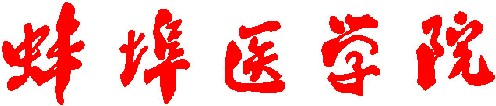 蚌埠医学院